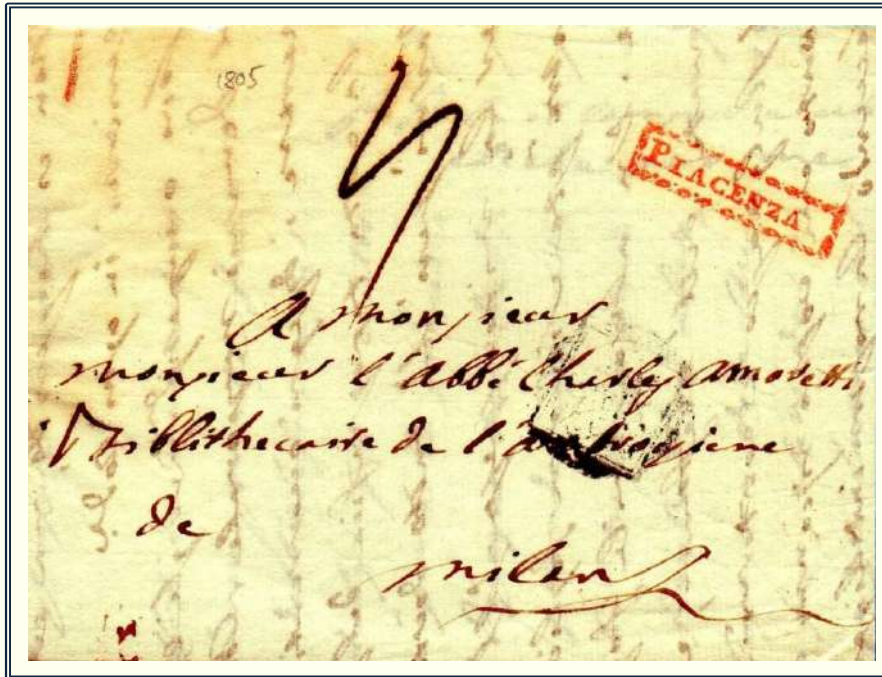 1805
PIACENZA
A monsieur
monsieur l'abbé Charles amoretti
Bibliothecaire de l'ambrosiene
de
milan